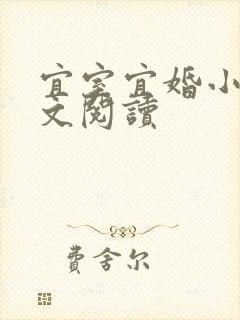 宜室宜婚小
文閱讀
費舍尔